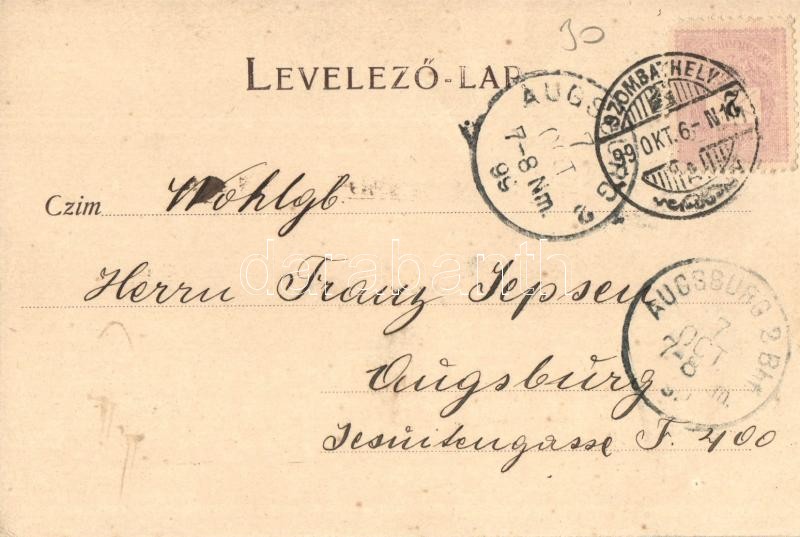 30
LEVELEZŐ-LAP
AUGSBURG 2
7
OCT
7-8 Nm.
99
SZOMBATHELY
99 OKT. 6 - N
Czim Wohlgb.
Herrn Franz Jepsen
Augsburg
Jesuitengasse F. 400
AUGSBURG 2 Bhf.
7
OCT
7-8
darabanth